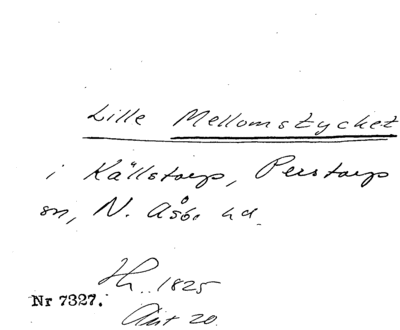 Lille Mellomstycket
i Källstorp, Perstorp
sn, N. Åsbo hd.
1825
Nr 7327.
Akt 20.